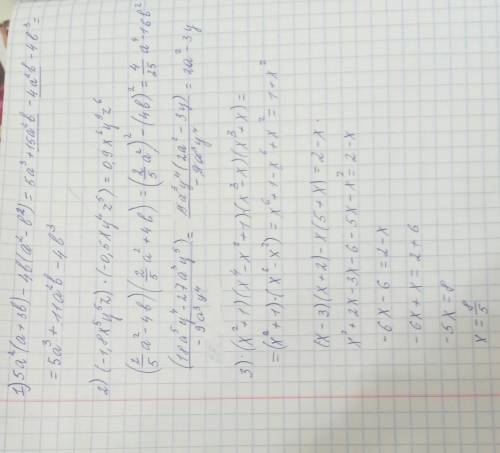 1) 5a²(a+3b) - 4b(a²-b²) = 5a³+15a²b - 4a²b - 4b³ =
= 5a³ + 11a²b - 4b³
2) (-1,8x⁵y⁵z) · (-0,5xy⁴z⁵) = 0,9x⁶y⁹z⁶
(2/5 a² - 4b) (2/5 a² + 4b) = (2/5 a²)² - (4b)² = 4/25 a⁴ - 16b²
(18a⁵y⁴ - 27a³y⁵) / -9a³y⁴ = 9a³y⁴(2a² - 3y) / -9a³y⁴ = 2a² - 3y
3) · (x²+1)(x⁴-x²+1)(x³-x)(x³+x) =
= (x⁶+1) · (x²-x³) = x⁶+1-x⁶+x² = 1+x²
(x-3)(x+2) - x(5+x) = 2-x.
x²+2x-3x-6-5x-x² = 2-x
-6x-6 = 2-x
-6x+x = 2+6
-5x = 8
x = 8/5